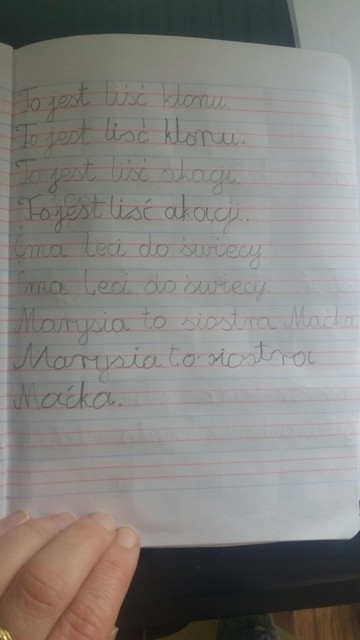 To jest liść klonu.
To jest liść klonu.
To jest liść akacji.
To jest liść akacji.
Ćma leci do świecy
Ćma leci do świecy.
Marysia to siostra Maćka
Marysia to siostra
Maćka.